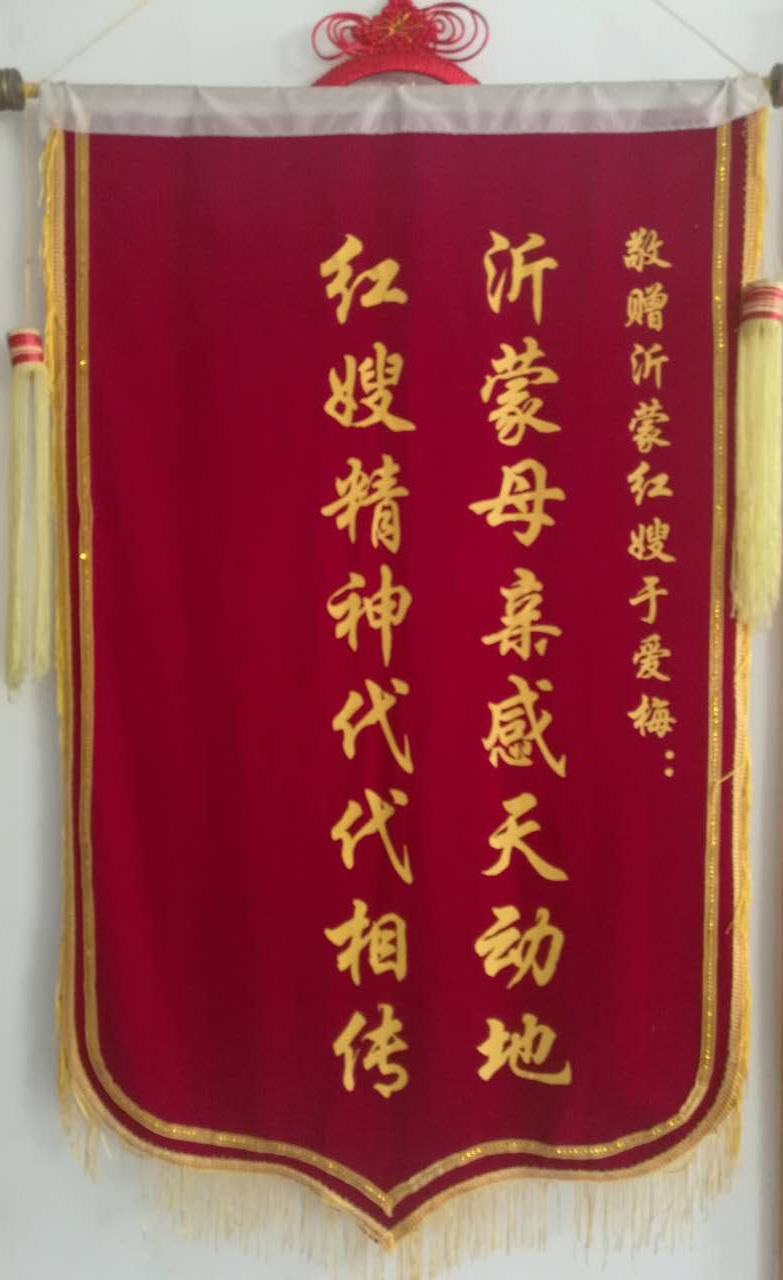 敬赠沂蒙红嫂于爱梅：
沂蒙母亲感天动地
红嫂精神代代相传